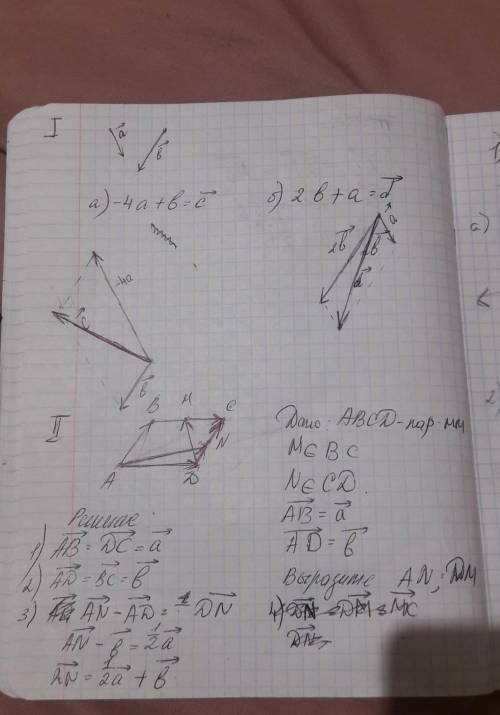 I
a⃗ b⃗
а) -4a + b = c⃗ б) 2b + a = d⃗
-4a
c⃗
b⃗
2b⃗ 2b⃗ a
d⃗
II
B M C
N
A D
Дано: ABCD - пар-мм
M ∈ BC
N ∈ CD.
AB⃗ = a⃗
AD⃗ = b⃗
Выразите AN; DM
Решение:
1) AB⃗ = DC⃗ = a⃗
2) AD⃗ = BC⃗ = b⃗
3) AN⃗ - AD⃗ = DN⃗
AN⃗ - b⃗ = 1/2a⃗
AN⃗ = 1/2a⃗ + b⃗
4)
1)
а)
2)